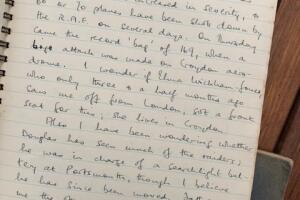 increased in severity, &
60 or 70 planes have been shot down by
the R.A.F. on several days. On Thursday
came the record 'bag' of 169, when a
attack was made on Croydon aero-
drome. I wonder if Rhona Wickham-Jones,
who only three & a half months ago
saw me off from London, got a front
seat for this; she lives in Croydon.
Also I have been wondering whether
Douglas has seen much of the raiders;
he was in charge of a searchlight bat-
tery at Portsmouth, though I believe
he has since been moved.
me the